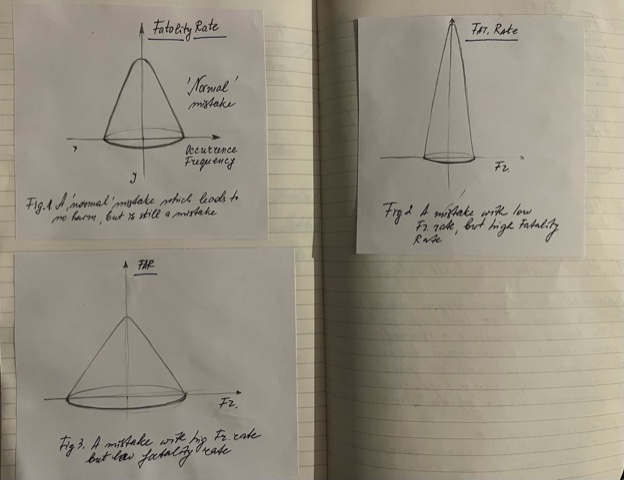 Fatality Rate
'Normal'
mistake
Occurrence
Frequency
y
Fig.1. A 'normal' mistake which leads to
no harm, but is still a mistake
Fat. Rate
Fr.
Fig 2 A mistake with low
Fr. rate, but high Fatality
Rate
FAR
Fr.
Fig 3. A mistake with big Fr. rate
but low fatality rate